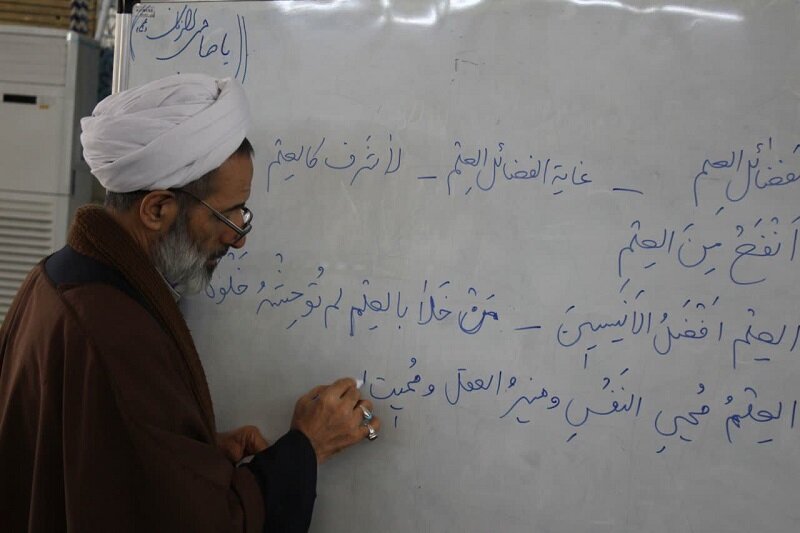 ((یا صاحب الزمان))
الفضائل العلم – غاية الفضائل العِلم – لا شَرَف کالعِلم
اَنْفَعُ مِنَ العِلم
العِلم اَفْضَلُ الاَنیسِینَ – مَنْ خَلاَ بالعِلم لم تُوحِشْهُ خَلْوَة
العِلْمُ مُحیِي النَفْسِ و منیرُ العقل و مُمیتِ ا